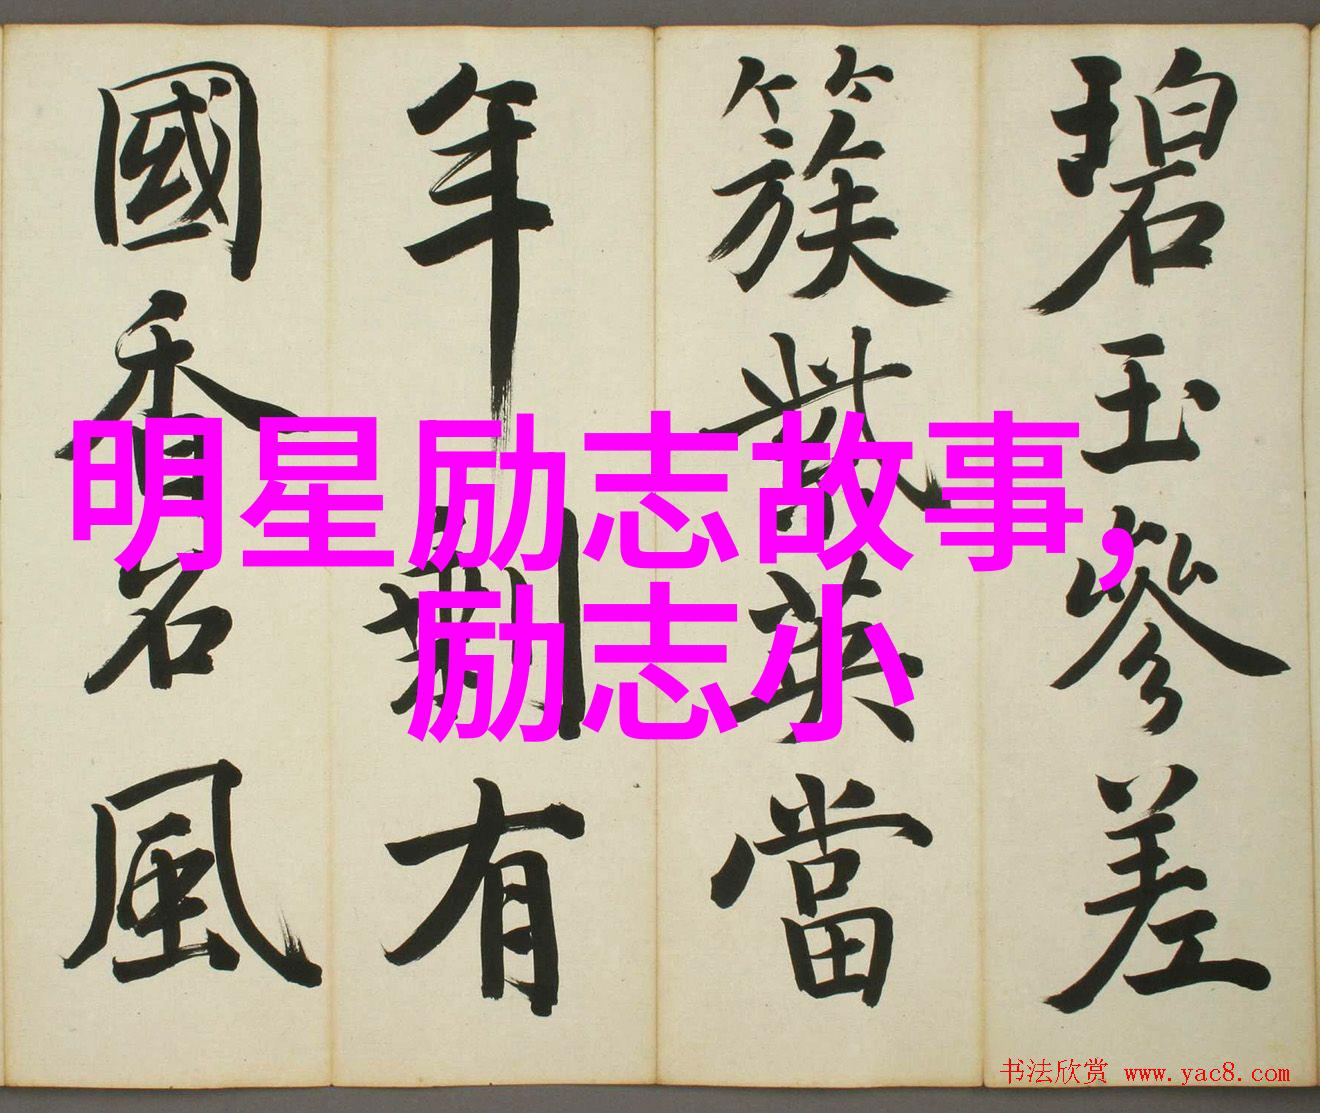 碧玉參差
簇紫英當
年荆有
國香名風
明星励志故事,
励志小
书法欣赏 www.yac8.com